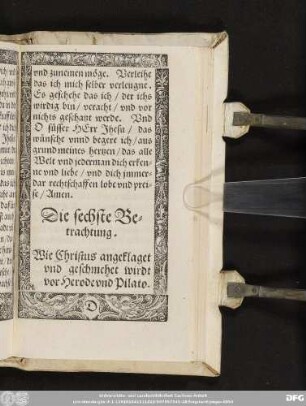 vnd zuneinen möge. Verleihe
das ich mich selber verleugne.
Es geschehe das ich / der ichs
wirdig bin / veracht / vnd vor
nichts geschant werde. Vnd
O süsser HErr Jhesu / das
wünscht vnnd begere ich / aus
grund meines hertzen / das alle
Welt vnd jederman dich erken-
ne vnd liebe / vnd dich immer-
dar rechtschaffen lobe vnd prei-
se / Amen.
Die sechste Be-
trachtung.
Wie Christus angeklaget
vnd geschmehet wirdt
vor Herode vnd Pilato.
D
DFG